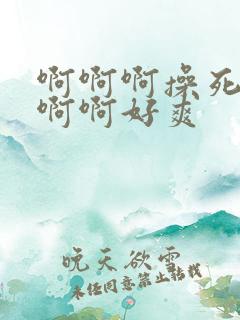 啊啊啊操死
啊啊好爽
晚天欲雪
未经同意禁止转载